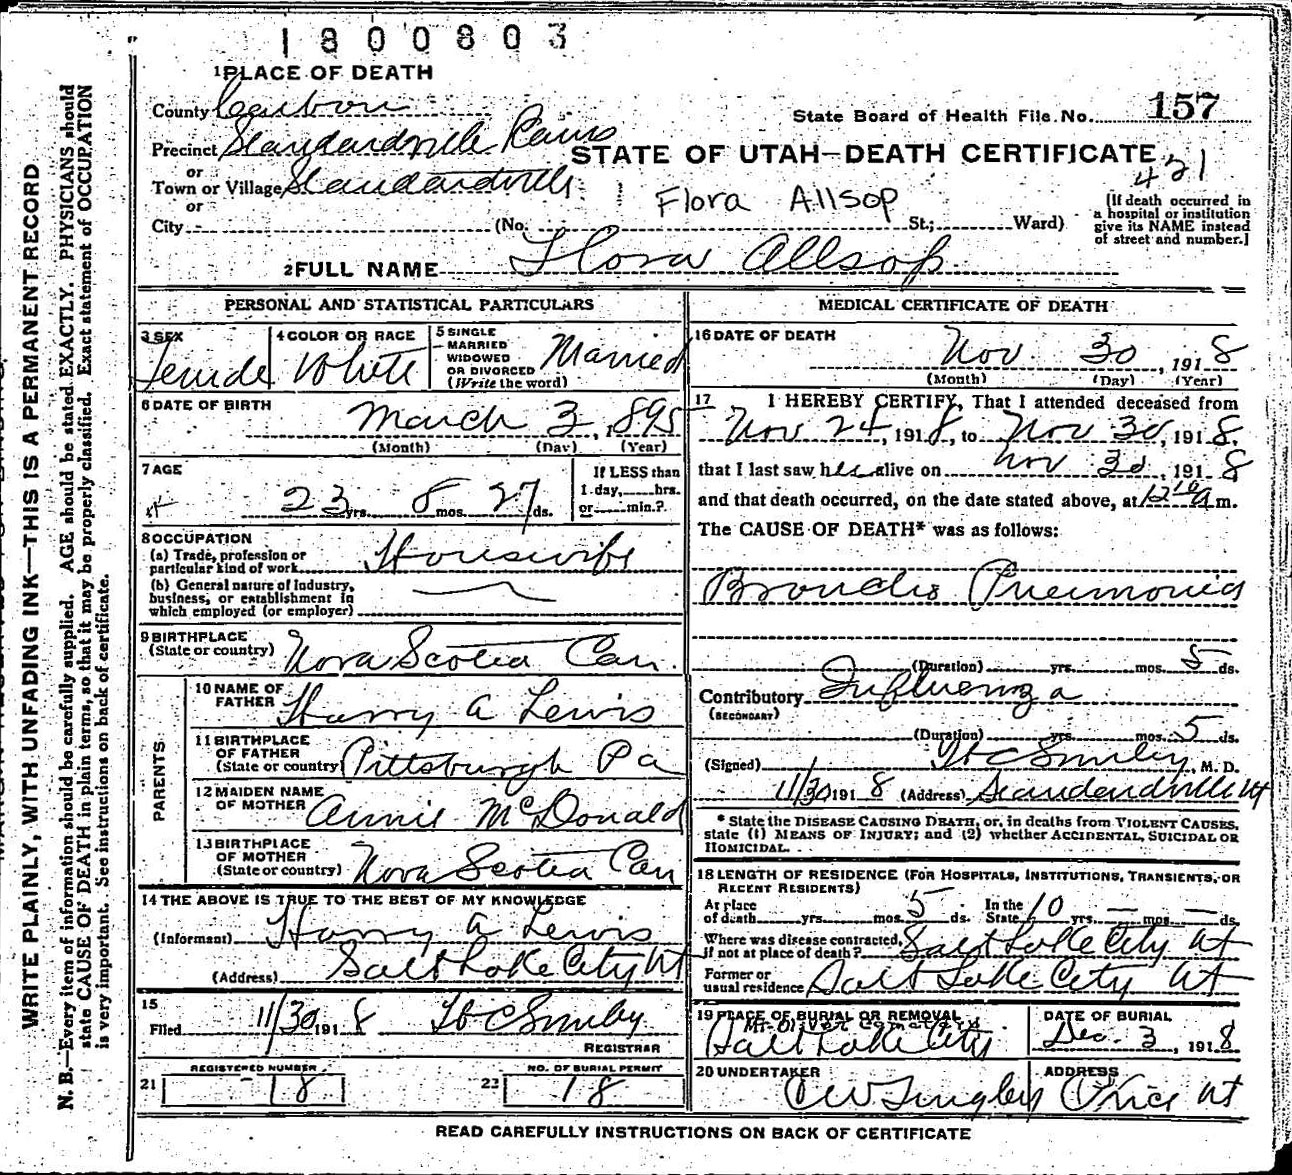 1800803
1 PLACE OF DEATH
County Carbon
State Board of Health File No. 157
Precinct Standardville Rains
STATE OF UTAH—DEATH CERTIFICATE
421
or
Town or Village Standardville
or
Flora Allsop
City (No. St.; Ward)
(If death occurred in
a hospital or institution
give its NAME instead
of street and number.]
2 FULL NAME Flora Allsop
PERSONAL AND STATISTICAL PARTICULARS
3 SEX Female
4 COLOR OR RACE White
5 SINGLE
MARRIED
WIDOWED
OR DIVORCED
(Write the word)
Married
6 DATE OF BIRTH
March 3, 1895
(Month) (Day) (Year)
7 AGE
23 yrs. 8 mos. 27 ds.
If LESS than
1 day, hrs.
or min.?
8 OCCUPATION
(a) Trade, profession or
particular kind of work Housewife
(b) General nature of industry,
business, or establishment in
which employed (or employer)
9 BIRTHPLACE
(State or country) Nova Scotia Can.
PARENTS
10 NAME OF
FATHER Harry A Lewis
11 BIRTHPLACE
OF FATHER
(State or country) Pittsburgh Pa
12 MAIDEN NAME
OF MOTHER Annie McDonald
13 BIRTHPLACE
OF MOTHER
(State or country) Nova Scotia Can
14 THE ABOVE IS TRUE TO THE BEST OF MY KNOWLEDGE
(Informant) Harry A Lewis
(Address) Salt Lake City Ut
15
Filed 11/30 1918 REGISTRAR
REGISTERED NUMBER
21 18
NO. OF BURIAL PERMIT
22 18
MEDICAL CERTIFICATE OF DEATH
16 DATE OF DEATH
Nov. 30, 1918
(Month) (Day) (Year)
17 I HEREBY CERTIFY, That I attended deceased from
Nov 24, 1918, to Nov 30, 1918,
that I last saw her alive on Nov 30, 1918
and that death occurred, on the date stated above, at 12 10 a m.
The CAUSE OF DEATH* was as follows:
Broncho Pneumonia
(Duration) yrs. mos. 5 ds.
Contributory Influenza
(SECONDARY)
(Duration) yrs. mos. 5 ds.
(Signed) , M. D.
11/30 1918 (Address) Standardville Ut
* State the DISEASE CAUSING DEATH, or, in deaths from VIOLENT CAUSES,
state (1) MEANS OF INJURY; and (2) whether ACCIDENTAL, SUICIDAL OR
HOMICIDAL.
18 LENGTH OF RESIDENCE (FOR HOSPITALS, INSTITUTIONS, TRANSIENTS, OR
RECENT RESIDENTS)
At place
of death yrs. mos. 5 ds. In the
State 10 yrs. — mos. — ds.
Where was disease contracted,
if not at place of death? Salt Lake City Ut
Former or
usual residence Salt Lake City Ut
19 PLACE OF BURIAL OR REMOVAL
Mt. Olivet Cemetery
Salt Lake City
DATE OF BURIAL
Dec. 3, 1918
20 UNDERTAKER
ADDRESS
Price Ut
READ CAREFULLY INSTRUCTIONS ON BACK OF CERTIFICATE
WRITE PLAINLY, WITH UNFADING INK—THIS IS A PERMANENT RECORD
N. B.—Every item of information should be carefully supplied. AGE should be stated EXACTLY. PHYSICIANS should
state CAUSE OF DEATH in plain terms, so that it may be properly classified. Exact statement of OCCUPATION
is very important. See instructions on back of certificate.